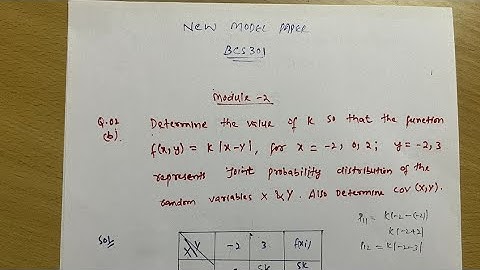 NEW MODEL PAPER
BCS301
Module -2
Q.02
(b).
Determine the value of k so that the function
f(x,y) = k |x-y|, for x = -2, 0, 2; y = -2, 3
represents Joint probability distribution of the
random variables X & Y. Also Determine cov (X,Y).
P11 = k|-2-(-2)|
k|-2+2|
P12 = k|-2-3|
Sol:
X Y -2 3 f(xi)
5k 5k